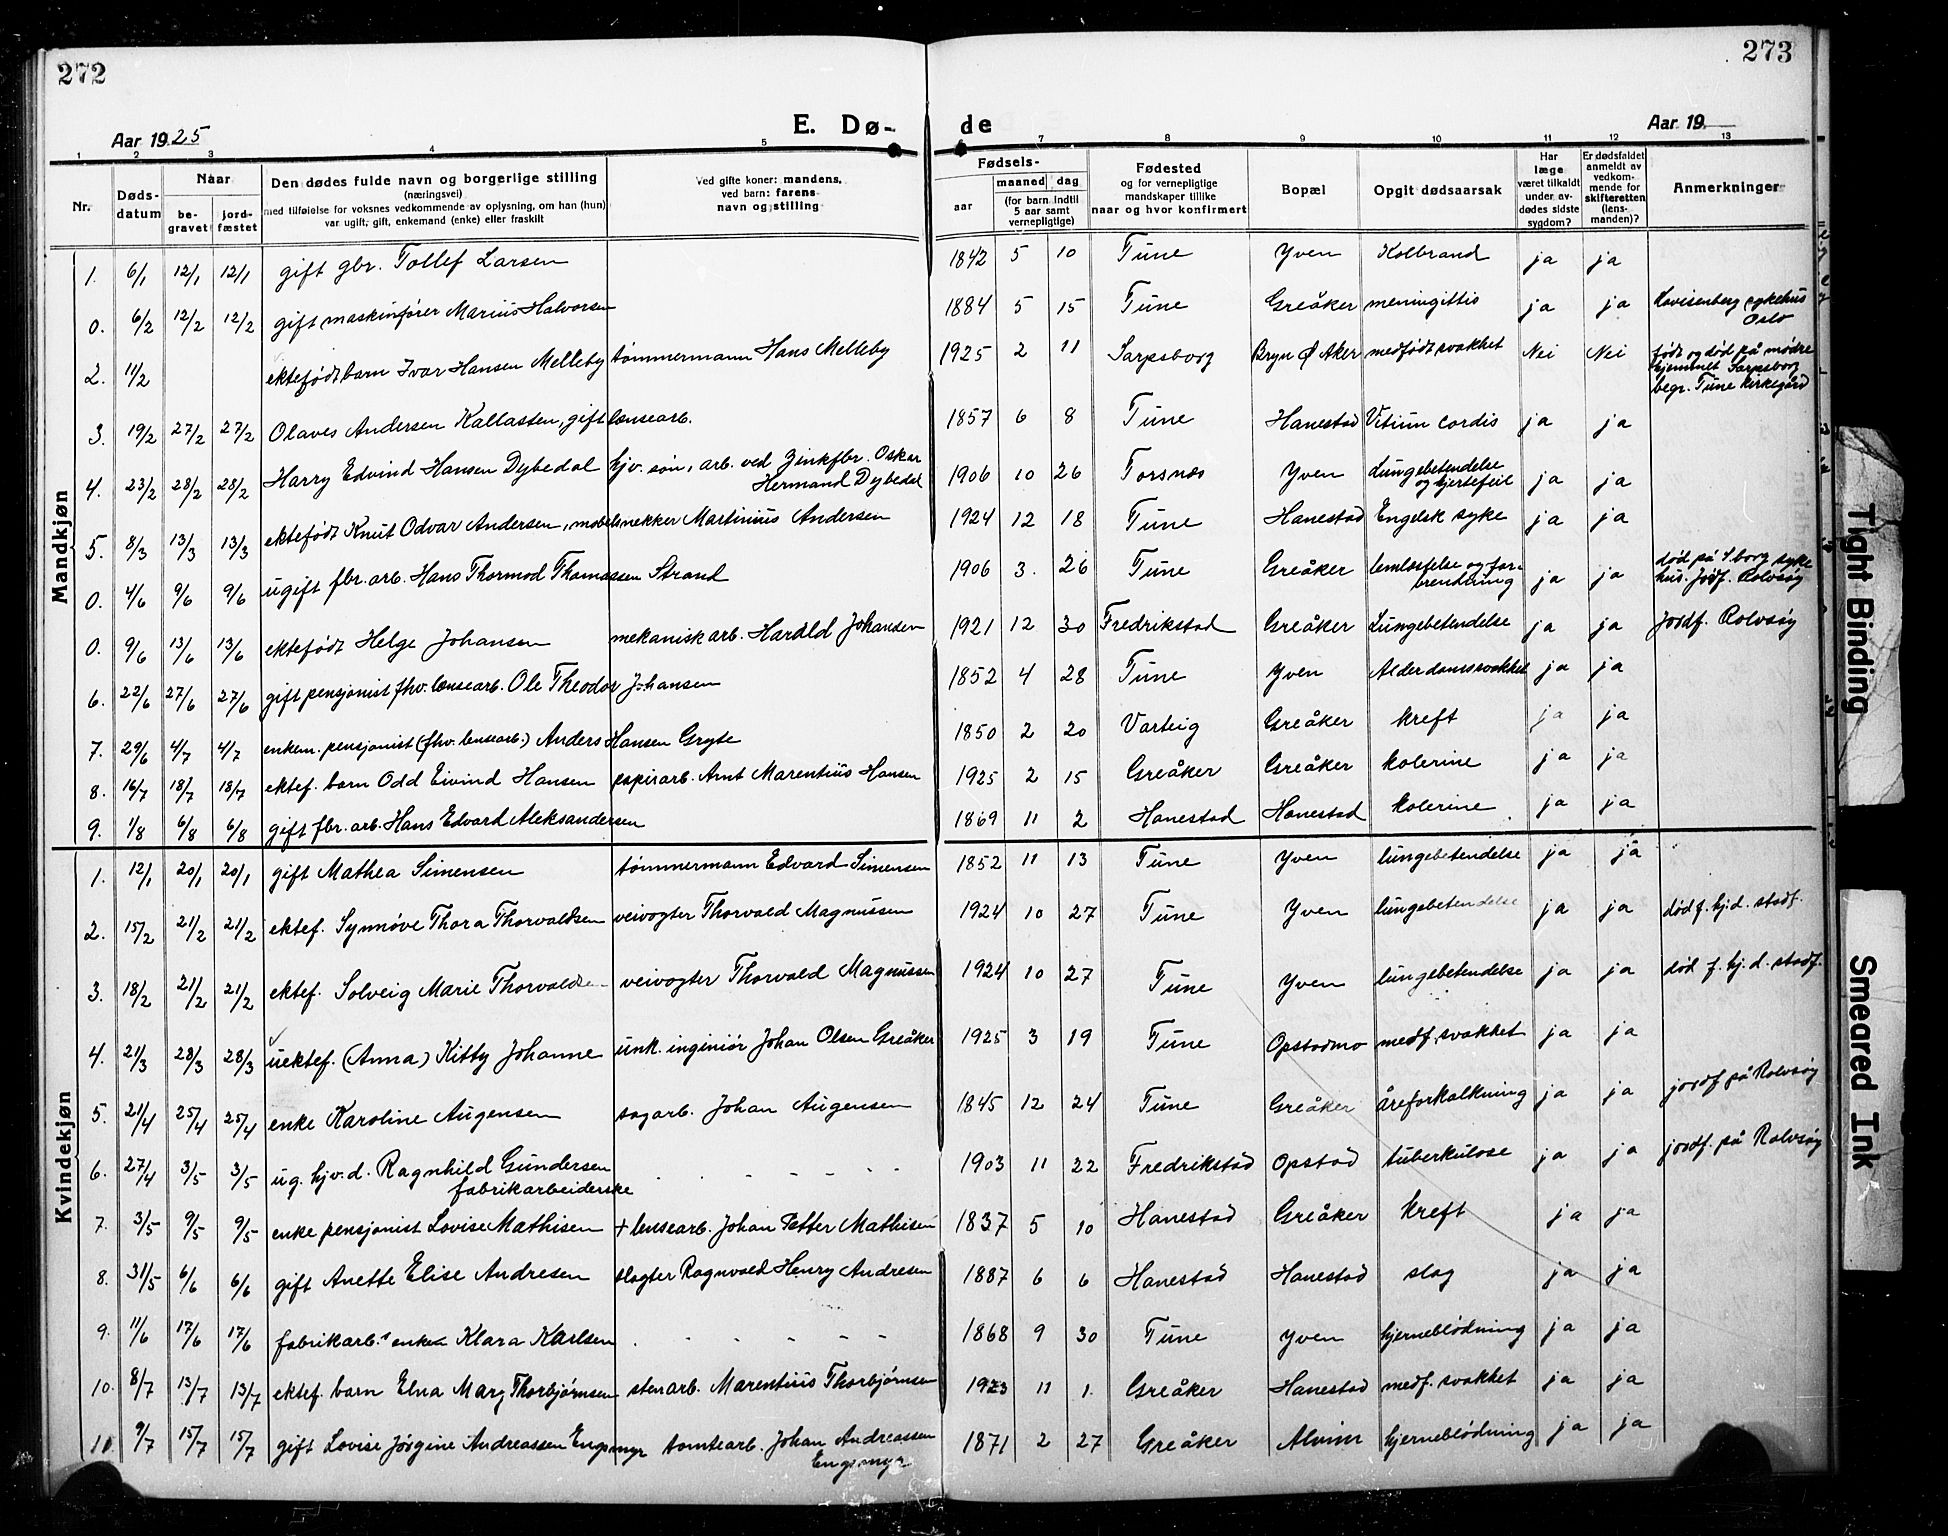 272
273
Aar 1925
E. Dø-
de
Aar 19
1 2 3 4 5 6 7 8 9 10 11 12 13
Nr. Døds-datum Naar be-gravet jord-fæstet Den dødes fulde navn og borgerlige stilling (næringsvei) med tilføielse for voksnes vedkommende av oplysning, om han (hun) var ugift, gift, enkemand (enke) eller fraskilt Ved gifte koner: mandens, ved barn: farens navn og stilling
Fødsels- aar maaned dag (for barn indtil 5 aar samt vernepligtige) Fødested og for vernepligtige mandskaper tillike naar og hvor konfirmert Bopæl Opgit dødsaarsak Har læge været tilkaldt under av-dødes sidste sygdom? Er dødsfaldet anmeldt av vedkom-mende for skifteretten (lens-manden)? Anmerkninger
Mandkjøn
1. 6/1 12/1 12/1 gift gbr. Tollef Larsen 1842 5 10 Tune Yven Kolbrand ja ja
0. 6/2 12/2 12/2 gift maskinfører Marius Halvorsen 1884 5 15 Tune Greåker meningittis ja ja Lovisenberg sykehus Oslo
2. 11/2 ektefødt barn Ivar Hansen Melleby tømmermann Hans Melleby 1925 2 11 Sarpsborg Bryn Ø Aker medfødt svakhet Nei Nei født og død på mødre hjemmet Sarpsborg begr. Tune kirkegård
3. 19/2 27/2 27/2 Olaves Andersen Kallasten, gift lensearb. 1857 6 8 Tune Hanestad Vitium cordis ja ja
4. 23/2 28/2 28/2 Harry Edvind Hansen Dybedal hjv. søn, arb. ved Zinkfbr. Oskar Hermand Dybedal 1906 10 26 Torsnæs Yven Lungebetendelse og hjertefeil ja ja
5. 8/3 13/3 13/3 ektefødt Knut Odvar Andersen, møbelsnekker Martinius Andersen 1924 12 18 Tune Hanestad Engelsk syke ja ja
0. 4/6 9/6 9/6 ugift fbr. arb. Hans Thormod Thomassen Strand 1906 3. 26 Tune Greåker lemlæstelse og for-brendning ja ja død på S.borg syke hus. Jodf. Rolvsøy
0. 9/6 13/6 13/6 ektefødt Helge Johansen mekanisk arb. Harald Johansen 1921 12 30 Fredrikstad Greåker Lungebetendelse ja ja Jordf. Rolvsøy
6. 22/6 27/6 27/6 gift pensjonist fhv. lensearb. Ole Theodor Johansen 1852 4 28 Tune Yven Alderdomssvakhet ja ja
7. 29/6 4/7 4/7 enkem. pensjonist (fhv. lensearb.) Anders Hansen Gryte 1850 2 20 Varteig Greåker kreft ja ja
8. 16/7 18/7 18/7 ektef. barn Odd Eivind Hansen papirarb. Arnt Marentius Hansen 1925 2 15 Greåker Greåker kolerine ja ja
9. 1/8 6/8 6/8 gift fbr. arb. Hans Edvard Aleksandersen 1869 11 2 Hanestad Hanestad kolerine ja ja
Kvindekjøn
1. 12/1 20/1 20/1 gift Mathea Simensen tømmermann Edvard Simensen 1852 11 13 Tune Yven lungebetendelse ja ja
2. 15/2 21/2 21/2 ektef. Synnøve Thora Thorvaldsen veivogter Thorvald Magnussen 1924 10 27 Tune Yven lungebetendelse ja ja død f. hj.d. stadf.
3. 18/2 21/2 21/2 ektef. Solveig Marie Thorvaldse- veivogter Thorvald Magnussen 1924 10 27 Tune Yven lungebetendelse ja ja død f. hj. d. stadf.
4. 21/3 28/3 28/3 uektef. (Anna) Kitty Johanne unk. inginiør Johan Olsen Greåker 1925 3 19 Tune Opstadmo medf. svakhet ja ja
5. 21/4 25/4 25/4 enke Karoline Augensen sagarb. Johan Augensen 1845 12 24 Tune Greåker åreforkalkning ja ja jordf på Rolvsøy
6. 27/4 3/5 3/5 ug. hjv. d. Ragnhild Gundersen fabrikarbeiderske 1903 11 22 Fredrikstad Opstad tuberkulose ja ja jordf. på Rolvsøy
7. 3/5 9/5 9/5 enke pensjonist Lovise Mathisen + lensearb. Johan Petter Mathisen 1837 5 10 Hanestad Greåker kreft ja ja
8. 31/5 6/6 6/6 gift Anette Elise Andresen slagter Ragnvald Henry Andresen 1887 6 6 Hanestad Hanestad slag ja ja
9. 11/6 17/6 17/6 fabrikarb.s enke Klara Karlsen 1868 9 30 Tune Yven hjerneblödning ja ja
10. 8/7 13/7 13/7 ektef. barn Elna Mary Thorbjørnsen stenarb. Marentius Thorbjørnsen 1923 11 1. Greåker Hanestad medf. svakhet ja ja
11. 9/7 15/7 15/7 gift Lovise Jørgine Andreassen Engsmyr tomtearb. Johan Andreassen Engsmyr 1871 2 27 Greåker Alvim hjerneblödning ja ja
Tight Binding
Smeared Ink